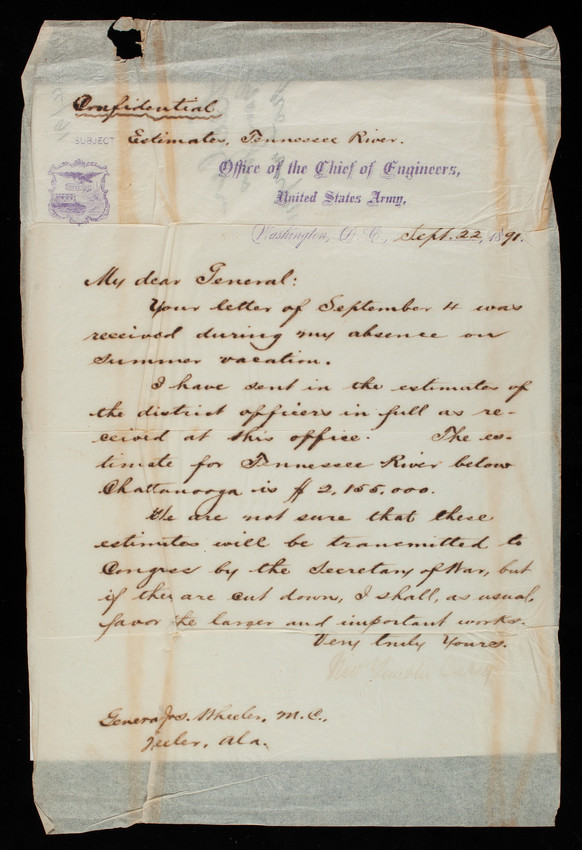 Confidential
SUBJECT
Estimates, Tennessee River.
Office of the Chief of Engineers,
United States Army,
Washington, D. C., Sept. 22, 1891.
My dear General:
Your letter of September 4 was
received during my absence on
summer vacation.
I have sent in the estimates of
the district officers in full as re-
ceived at this office. The es-
timate for Tennessee River below
Chattanooga is $ 2,155,000.
We are not sure that these
estimates will be transmitted to
Congress by the Secretary of War, but
if they are cut down, I shall, as usual,
favor the larger and important works.
Very truly Yours.
Thos. Lincoln Casey
General Jos. Wheeler, M. C.,
Wheeler, Ala.